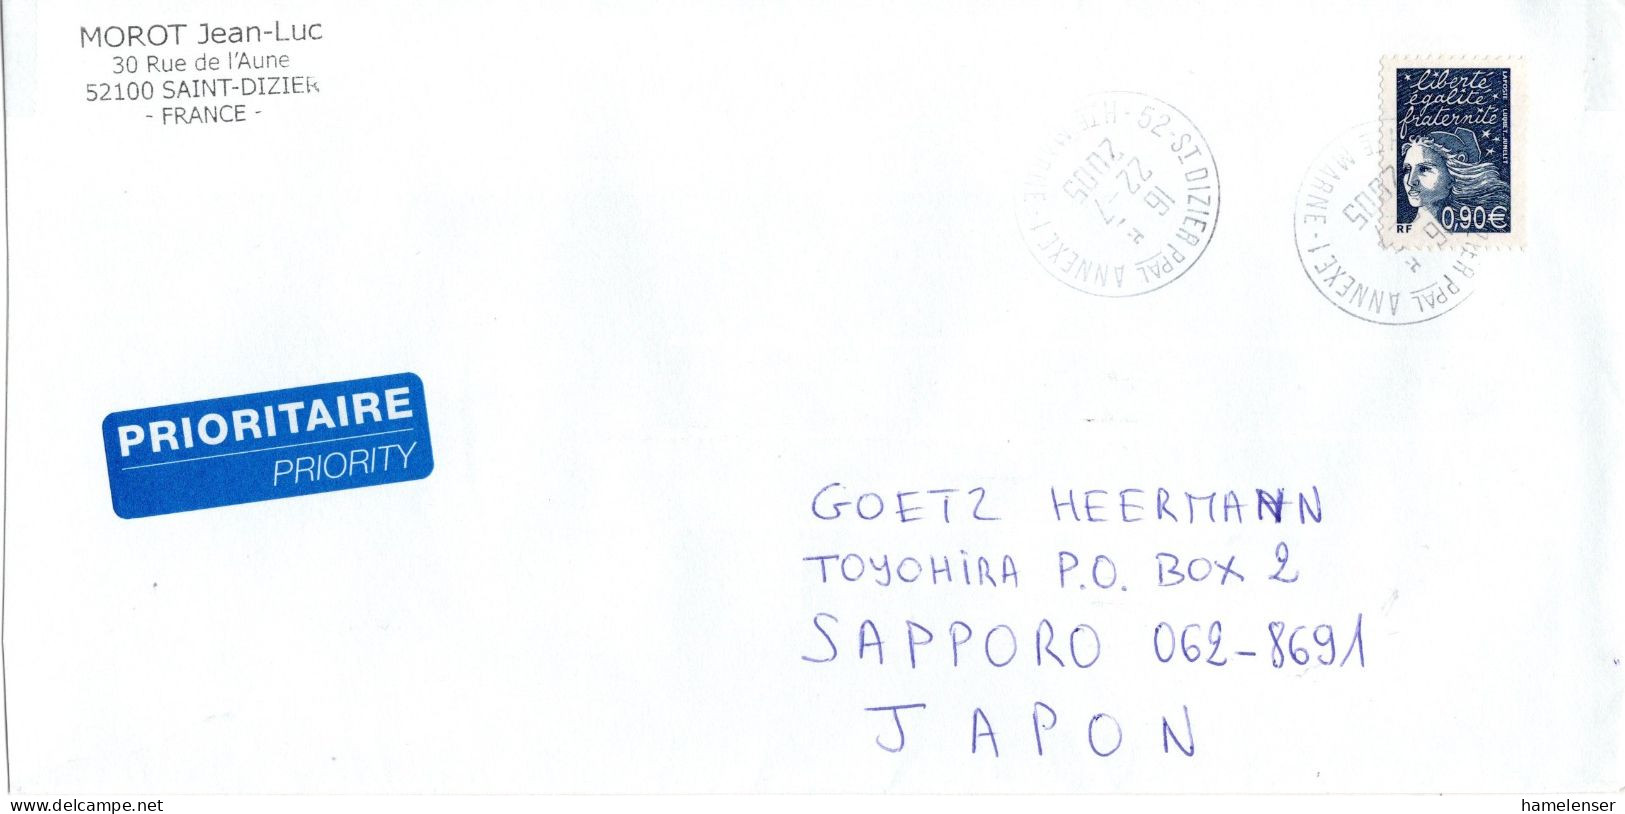 MOROT Jean-Luc
30 Rue de l'Aune
52100 SAINT-DIZIER
- FRANCE -
liberté
égalité
fraternité
LA POSTE LUQUET-JUMELET
RF 0,90€
52-ST DIZIER PPAL ANNEXE 1 - HTE MARNE
16
22-7
2005
*
ANNEXE 1 - MARNE
2005
PRIORITAIRE
PRIORITY
GOETZ HEERMANN
TOYOHIRA P.O. BOX 2
SAPPORO 062-8691
JAPON
www.delcampe.net
hamelenser